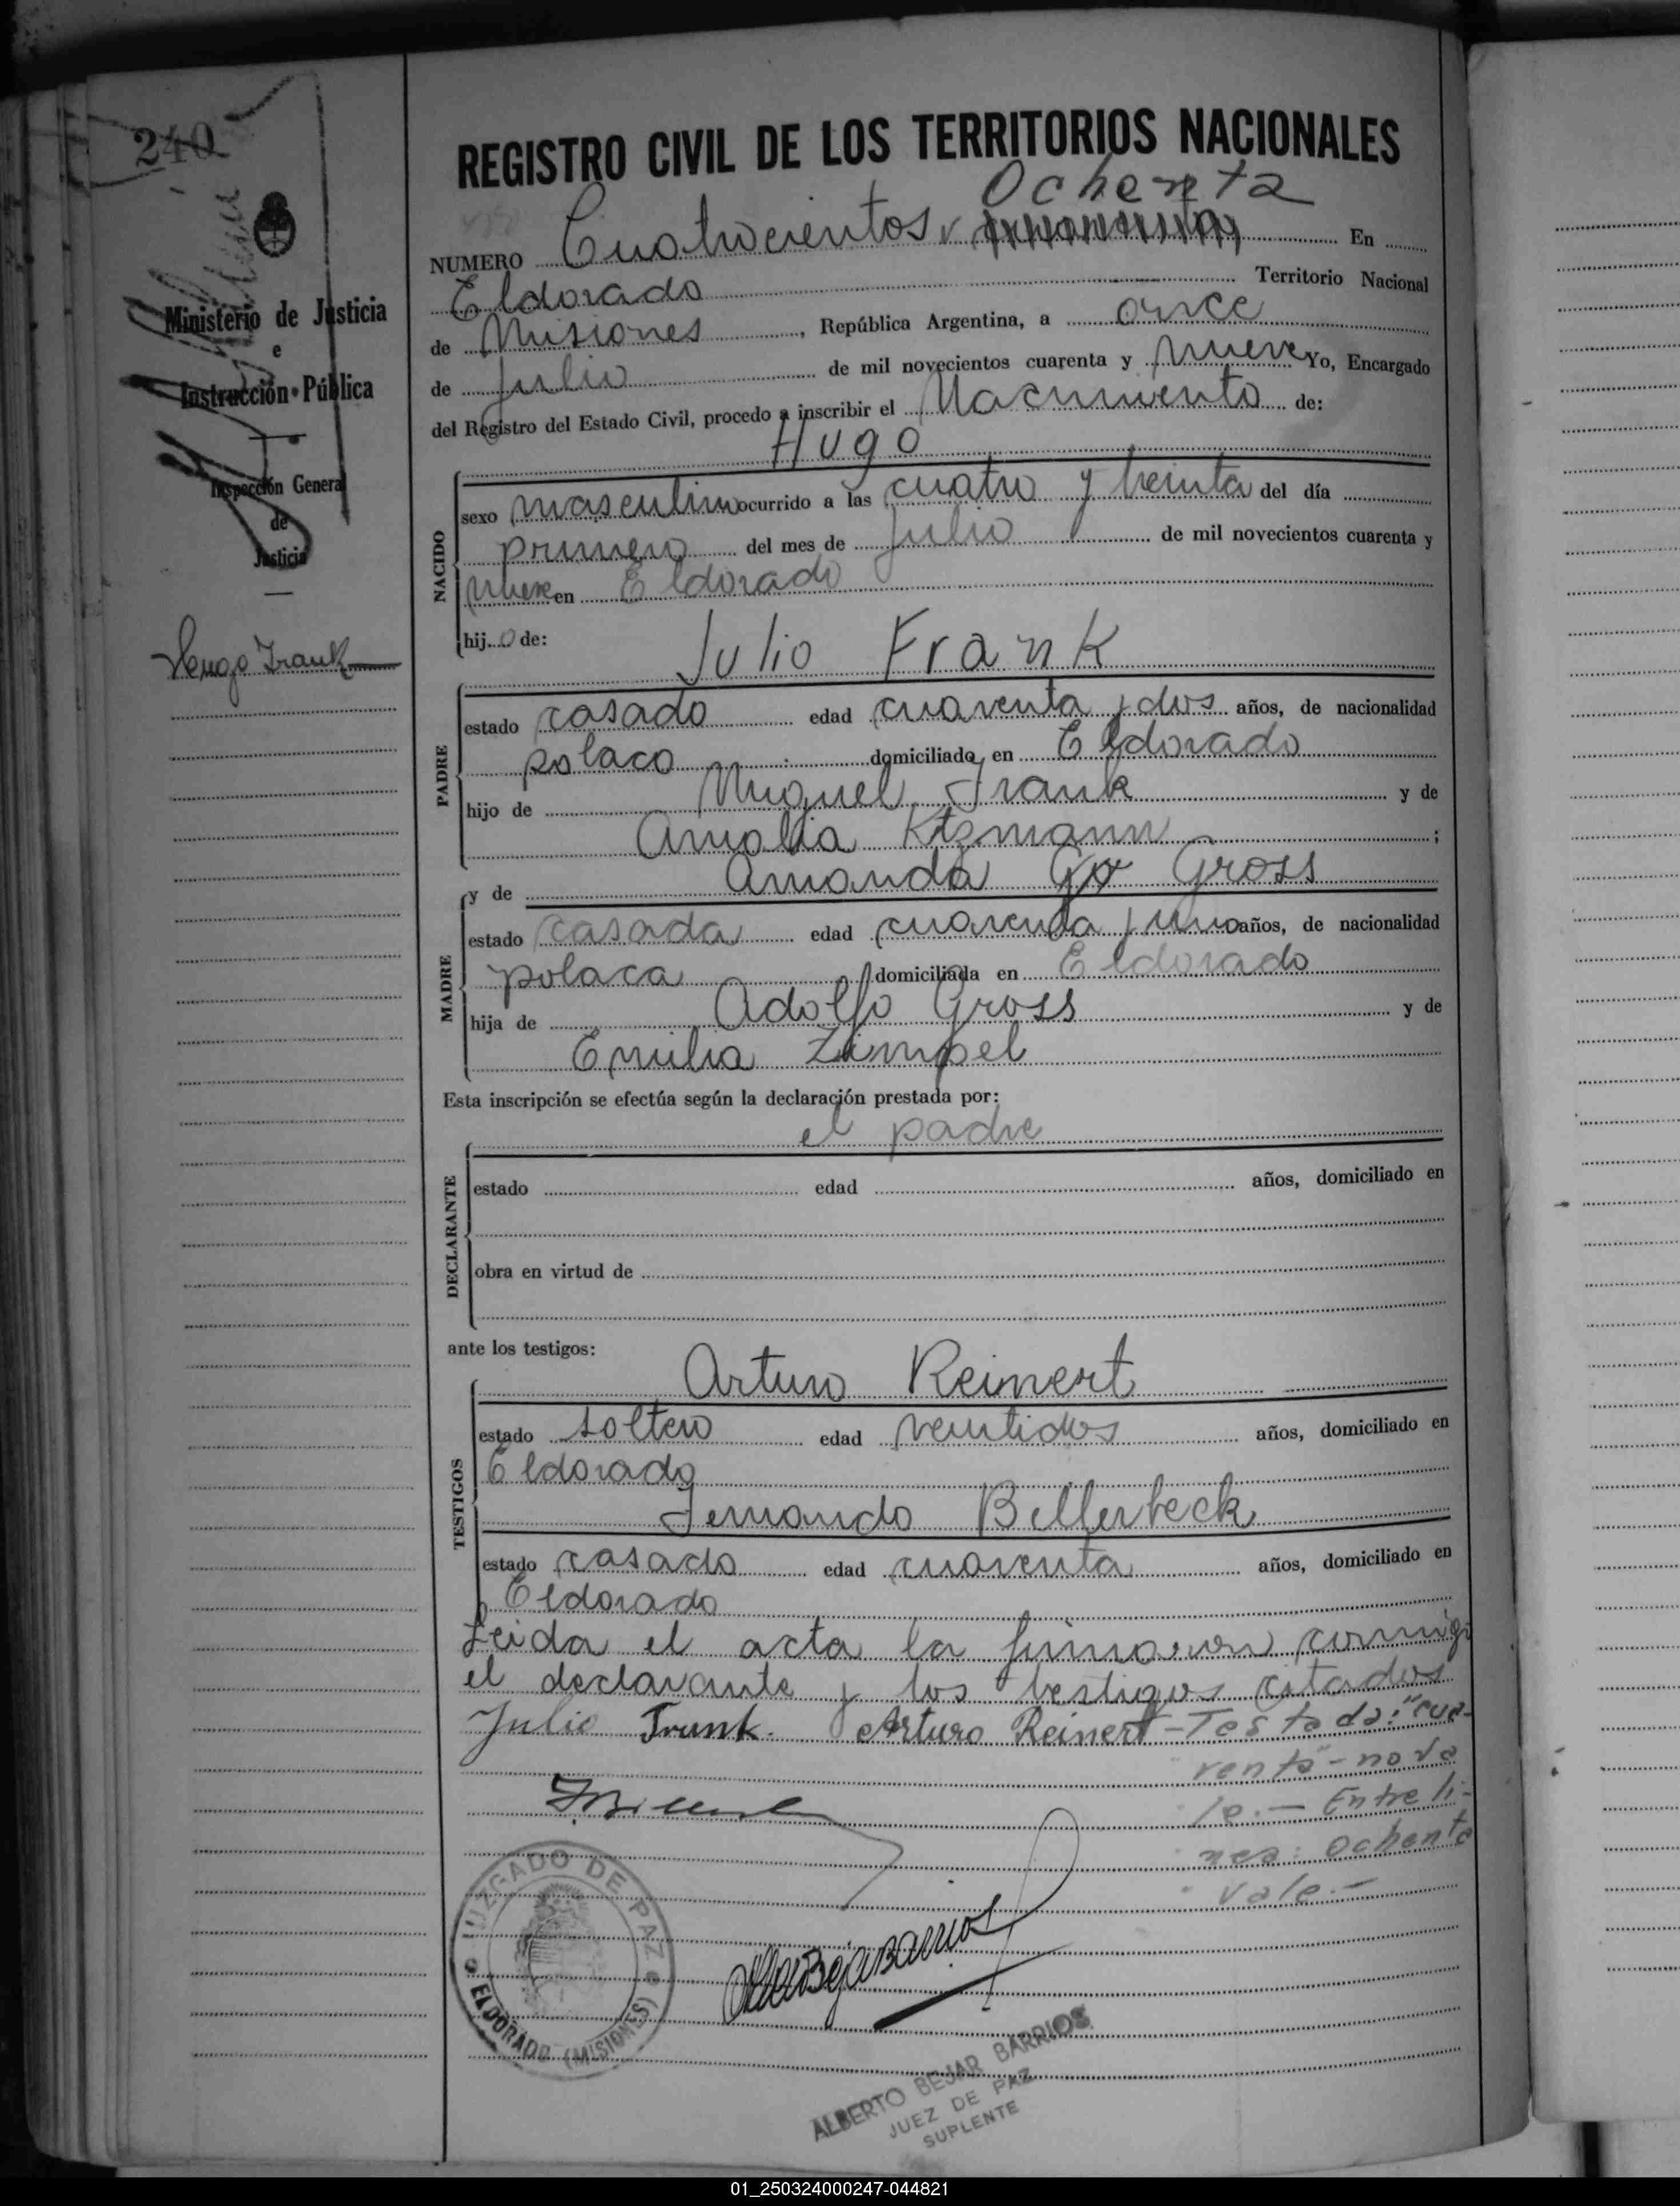 240
REGISTRO CIVIL DE LOS TERRITORIOS NACIONALES
Ochenta
NUMERO Cuatrocientos En
Eldorado Territorio Nacional
de Misiones, República Argentina, a once
de Julio de mil novecientos cuarenta y nueve Yo, Encargado
del Registro del Estado Civil, procedo a inscribir el Nacimiento de:
Hugo
Ministerio de Justicia
e
Instrucción Pública
Inspección General
de
Justicia
Hugo Frank
NACIDO
sexo masculino ocurrido a las cuatro y treinta del día
primero del mes de Julio de mil novecientos cuarenta y
nueve en Eldorado
hijo de: Julio Frank
PADRE
estado casado edad cuarenta y dos años, de nacionalidad
polaco domiciliado en Eldorado
hijo de Miguel Frank y de
Amalia Ktzmann;
y de Amanda Gross
MADRE
estado casada edad cuarenta y uno años, de nacionalidad
polaca domiciliada en Eldorado
hija de Adolfo Gross y de
Emilia Zimpel
Esta inscripción se efectúa según la declaración prestada por:
el padre
DECLARANTE
estado edad años, domiciliado en
obra en virtud de
ante los testigos:
Arturo Reinert
TESTIGOS
estado soltero edad veintidos años, domiciliado en
Eldorado
Fernando Billerbeck
estado casado edad cuarenta años, domiciliado en
Eldorado
Leida el acta la firmaron conmigo
el declarante y los testigos citados
Julio Frank. Arturo Reinert - Testado: "cua-
renta" - no va
le. - Entre li-
nea: Ochenta
vale. -
JUZGADO DE PAZ
ELDORADO (MISIONES)
ALBERTO BEJAR BARRIOS
JUEZ DE PAZ
SUPLENTE
01_250324000247-044821